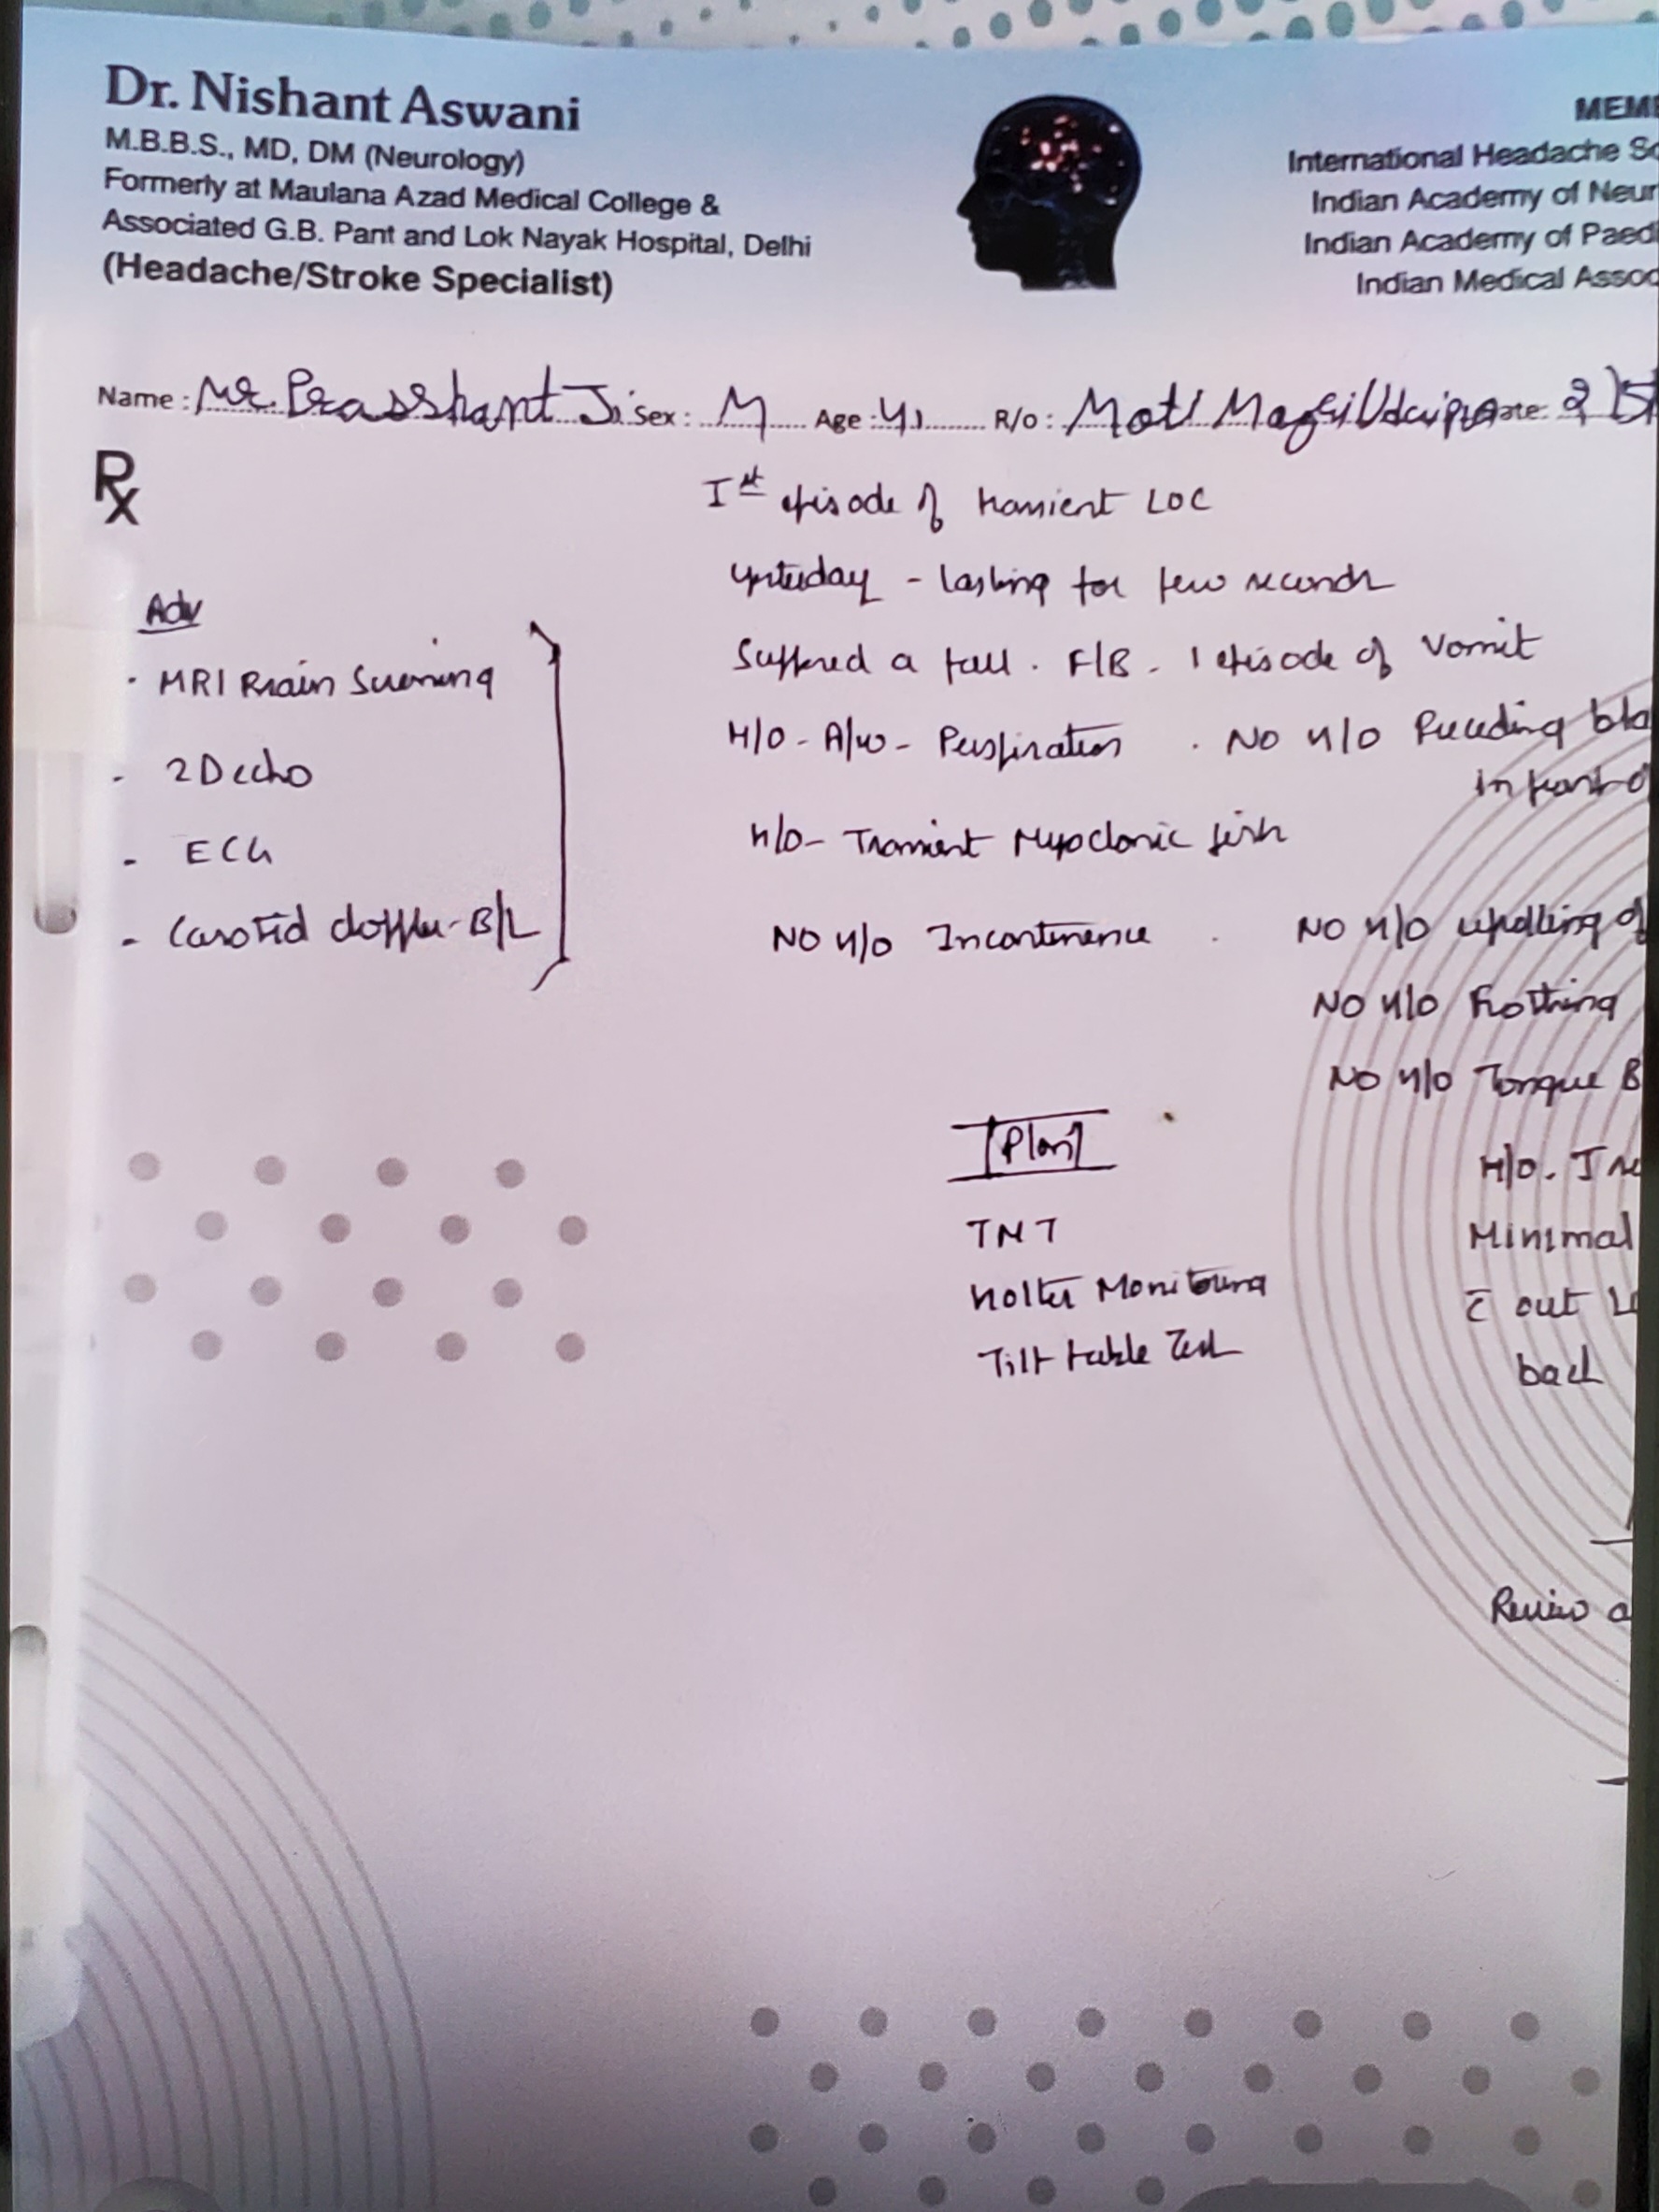 Dr. Nishant Aswani
M.B.B.S., MD, DM (Neurology)
Formerly at Maulana Azad Medical College &
Associated G.B. Pant and Lok Nayak Hospital, Delhi
(Headache/Stroke Specialist)
MEM
International Headache
Indian Academy of Neur
Indian Academy of Paed
Indian Medical Assoc
Name: Mr. Prasshant Ji Sex: M Age: 41 R/o: Moti Magri Udaipur Date: 2/5
Rx
Ist episode of transient LOC
yesterday - lasting for few seconds
Suffered a fall. F/B - 1 episode of Vomit
H/O - A/w - Perspiration . No H/O Preceding bla
in front o
H/O - Transient Myoclonic jerk
NO H/O Incontinence . NO H/O uprolling of
NO H/O Frothing
NO H/O Tongue B
Adv
· MRI Brain Screening
- 2D echo
- ECG
- Carotid doppler - B/L
Plan
TMT
Holter Monitoring
Tilt table Test
H/O.
Minimal
c̄ out
back
Review